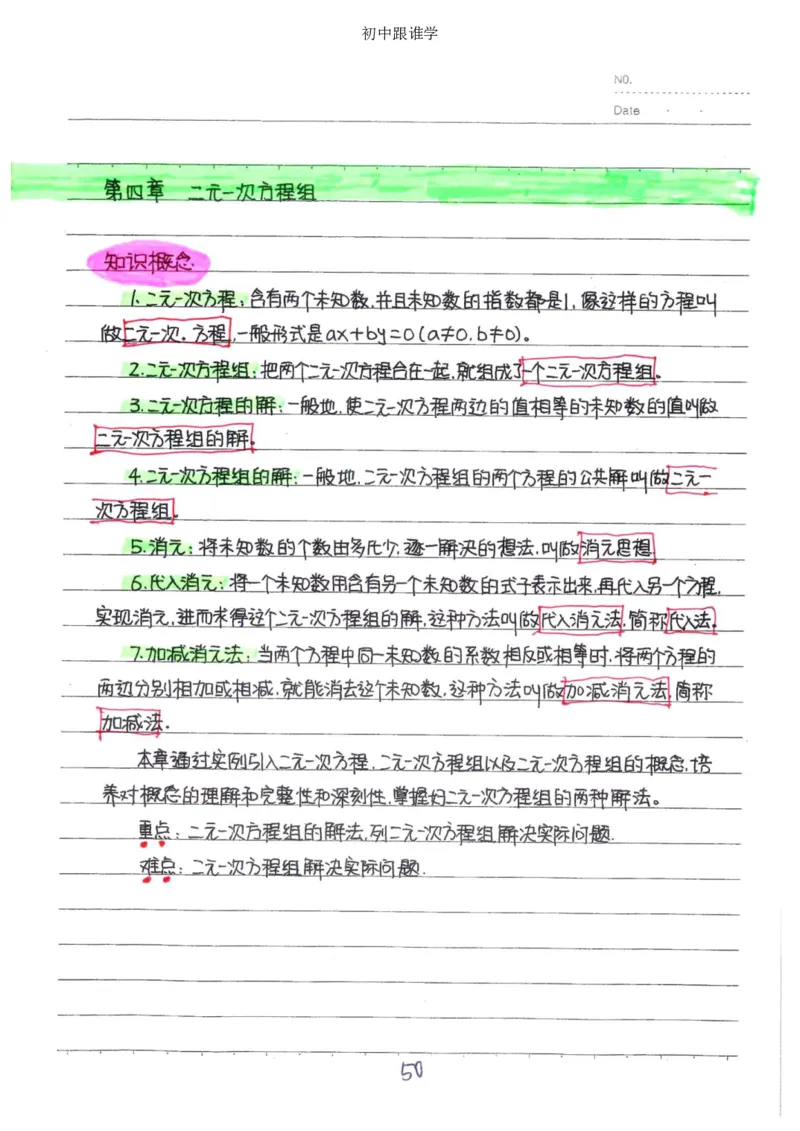 初中跟谁学
NO.
Date
第四章 二元一次方程组
知识概念
1.二元一次方程:含有两个未知数,并且未知数的指数都是1,像这样的方程叫
做二元一次.方程,一般形式是ax+by=0(a≠0,b≠0)。
2.二元一次方程组:把两个二元一次方程合在一起,就组成了一个二元一次方程组。
3.二元一次方程的解:一般地,使二元一次方程两边的值相等的未知数的值叫做
二元一次方程组的解。
4.二元一次方程组的解:一般地,二元一次方程组的两个方程的公共解叫做二元一
次方程组。
5.消元:将未知数的个数由多化少,逐一解决的想法,叫做消元思想
6.代入消元:将一个未知数用含有另一个未知数的式子表示出来,再代入另一个方程,
实现消元,进而求得这个二元一次方程组的解,这种方法叫做代入消元法,简称代入法。
7.加减消元法:当两个方程中同一未知数的系数相反或相等时,将两个方程的
两边分别相加或相减,就能消去这个未知数,这种方法叫做加减消元法,简称
加减法.
本章通过实例引入二元一次方程,二元一次方程组以及二元一次方程组的概念,培
养对概念的理解和完整性和深刻性,掌握好二元一次方程组的两种解法。
重点:二元一次方程组的解法,列二元一次方程组解决实际问题.
难点:二元一次方程组解决实际问题.
50